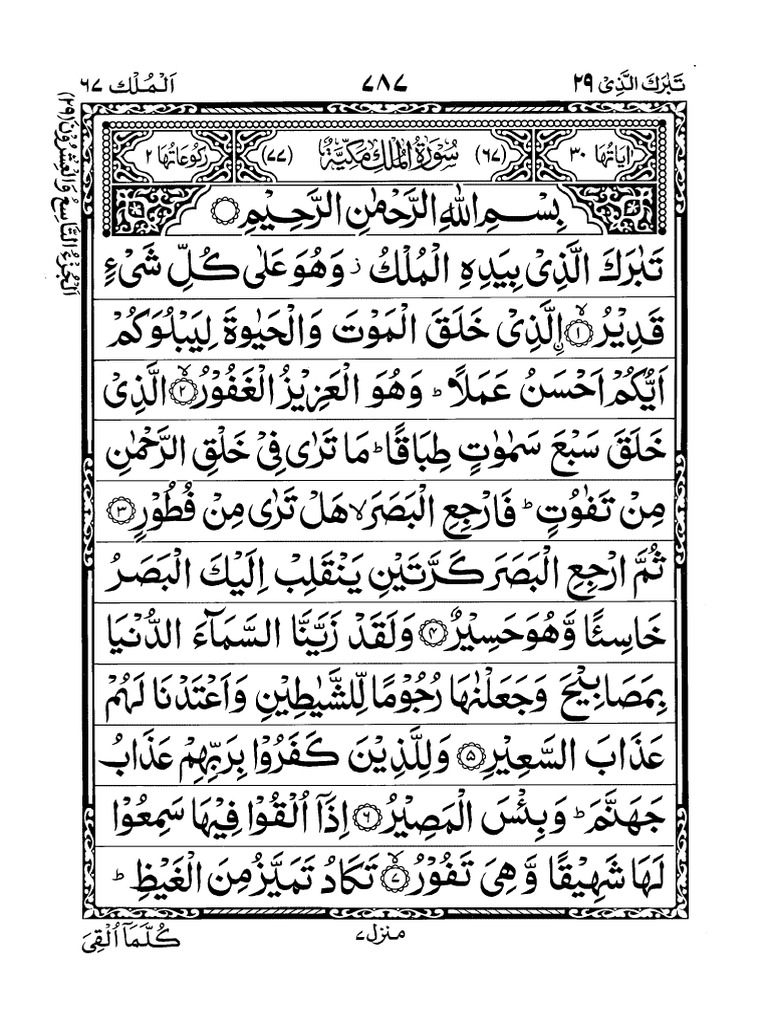 تَبٰرَكَ الَّذِىْ ٢٩
٧٨٧
اَلْمُلْك ٦٧
اٰيَاتُهَا ٣٠
(٦٧) سُوْرَةُ الْمُلْكِ مَكِّيَّةٌ (٧٧)
رُكُوْعَاتُهَا ٢
بِسْمِ اللهِ الرَّحْمٰنِ الرَّحِيْمِ ۝
تَبٰرَكَ الَّذِىْ بِيَدِهِ الْمُلْكُ ز وَهُوَ عَلٰى كُلِّ شَىْءٍ
قَدِيْرُ ۙ﴿١﴾ ۨالَّذِىْ خَلَقَ الْمَوْتَ وَالْحَيٰوةَ لِيَبْلُوَكُمْ
اَيُّكُمْ اَحْسَنُ عَمَلًا ؕ وَهُوَ الْعَزِيْزُ الْغَفُوْرُ ۙ﴿٢﴾ الَّذِىْ
خَلَقَ سَبْعَ سَمٰوٰتٍ طِبَاقًا ؕ مَا تَرٰى فِىْ خَلْقِ الرَّحْمٰنِ
مِنْ تَفٰوُتٍ ؕ فَارْجِعِ الْبَصَرَ ۙ هَلْ تَرٰى مِنْ فُطُوْرٍ ﴿٣﴾
ثُمَّ ارْجِعِ الْبَصَرَ كَرَّتَيْنِ يَنْقَلِبْ اِلَيْكَ الْبَصَرُ
خَاسِئًا وَّهُوَ حَسِيْرٌ ﴿٤﴾ وَلَقَدْ زَيَّنَّا السَّمَآءَ الدُّنْيَا
بِمَصَابِيْحَ وَجَعَلْنٰهَا رُجُوْمًا لِّلشَّيٰطِيْنِ وَاَعْتَدْنَا لَهُمْ
عَذَابَ السَّعِيْرِ ﴿٥﴾ وَلِلَّذِيْنَ كَفَرُوْا بِرَبِّهِمْ عَذَابُ
جَهَنَّمَ ؕ وَبِئْسَ الْمَصِيْرُ ﴿٦﴾ اِذَآ اُلْقُوْا فِيْهَا سَمِعُوْا
لَهَا شَهِيْقًا وَّهِىَ تَفُوْرُ ۙ﴿٧﴾ تَكَادُ تَمَيَّزُ مِنَ الْغَيْظِ ؕ
منزل ٧
كُلَّمَآ اُلْقِىَ
اَلْجُزْءُ التَّاسِعُ وَالْعِشْرُوْنَ (٢٩)